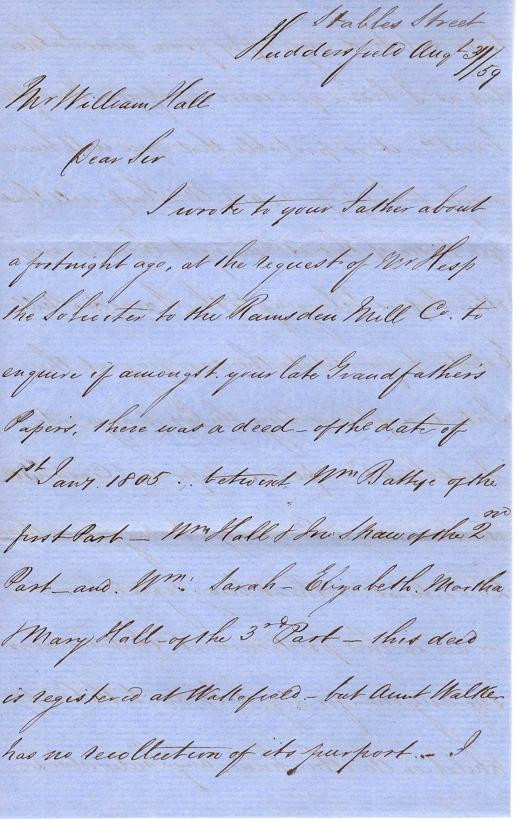 Stables Street
Huddersfield Augt 31/59
Mr William Hall
Dear Sir
I wrote to your Father about
a fortnight ago, at the request of Mr Hesp
the Soliciter to the Ramsden Mill Co. to
enquire if amongst your late Grandfather's
Papers, there was a deed - of the date of
1st Jany 1805 .. betwixt Wm Battye of the
first Part - Wm Hall & Jno Shaw of the 2nd
Part - and. Wm: Sarah - Elizabeth. Martha
& Mary Hall - of the 3rd Part - this deed
is registered at Wakefield - but Aunt Walker
has no recollection of its purport. - I